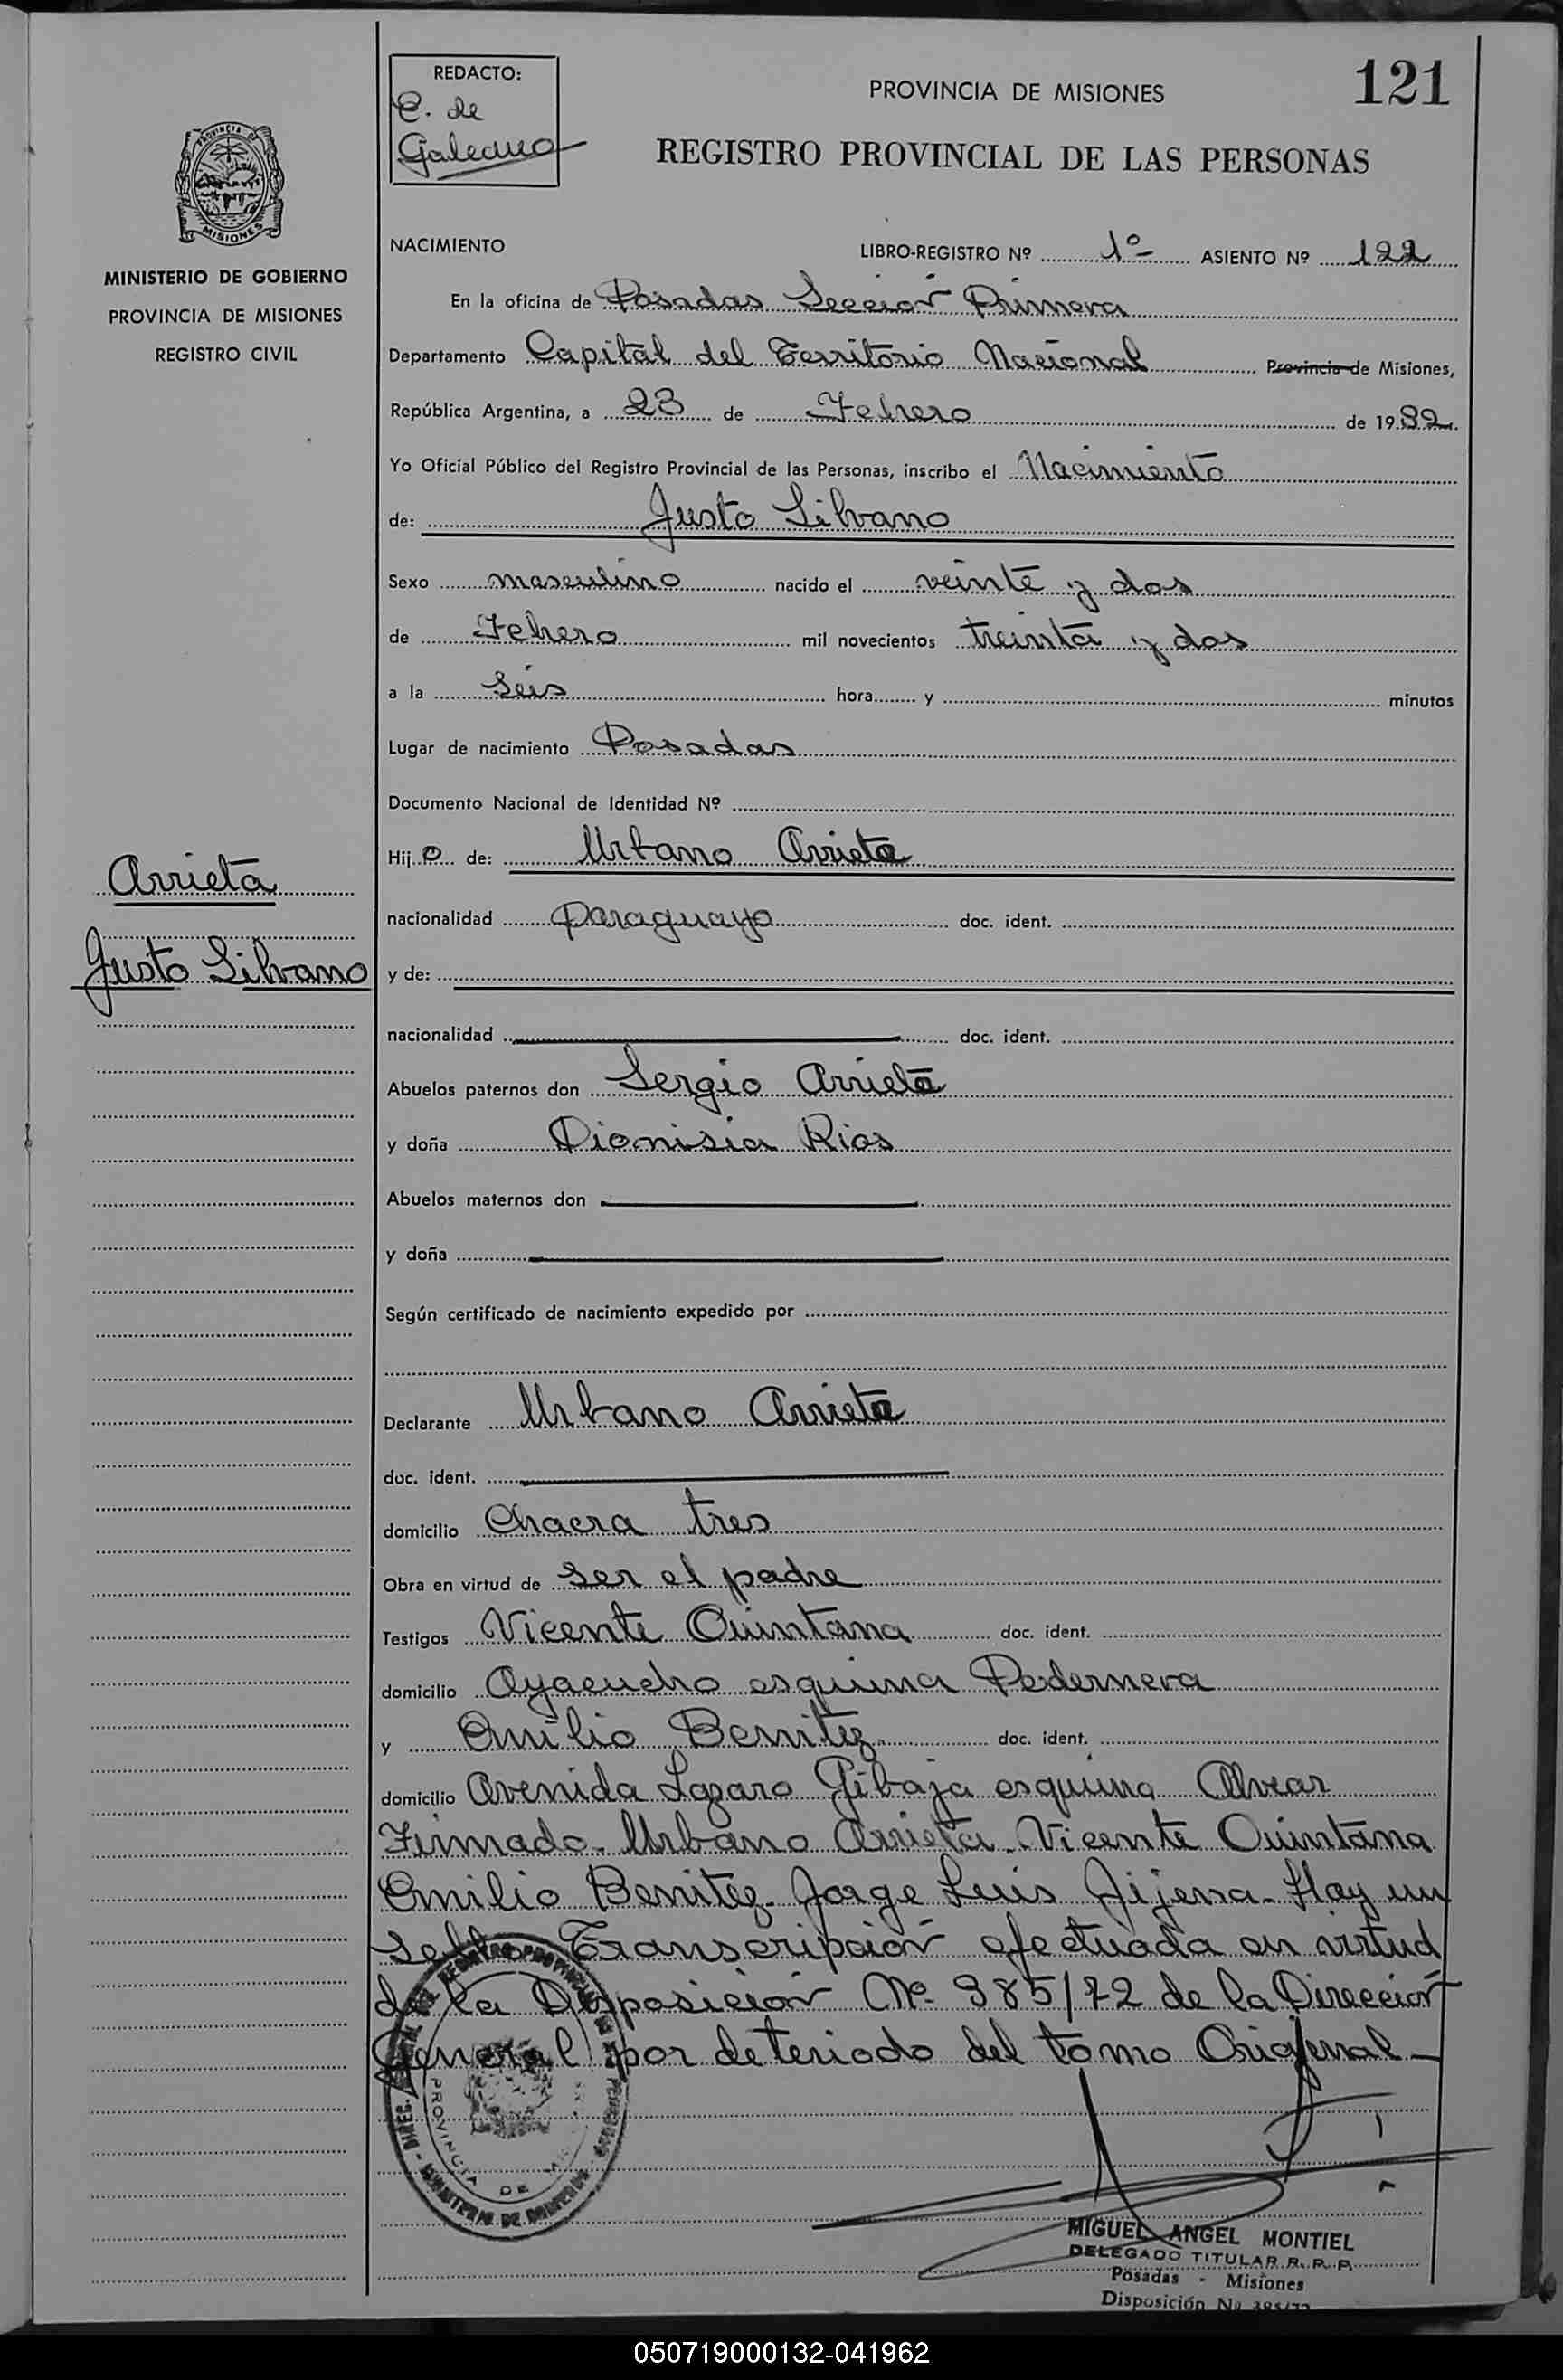 121
REDACTO:
C. de
Galeano
PROVINCIA DE MISIONES
REGISTRO PROVINCIAL DE LAS PERSONAS
PROVINCIA DE
MISIONES
MINISTERIO DE GOBIERNO
PROVINCIA DE MISIONES
REGISTRO CIVIL
NACIMIENTO LIBRO-REGISTRO Nº 1º ASIENTO Nº 122
En la oficina de Posadas Sección Primera
Departamento Capital del Territorio Nacional Provincia de Misiones,
República Argentina, a 23 de Febrero de 1932.
Yo Oficial Público del Registro Provincial de las Personas, inscribo el Nacimiento
de: Justo Silvano
Sexo masculino nacido el veinte y dos
de Febrero mil novecientos treinta y dos
a la Seis hora y minutos
Lugar de nacimiento Posadas
Documento Nacional de Identidad Nº
Hijo de: Urbano Arrieta
Arrieta
nacionalidad Paraguayo doc. ident.
Justo Silvano
y de:
nacionalidad doc. ident.
Abuelos paternos don Sergio Arrieta
y doña Dionisia Rios
Abuelos maternos don
y doña
Según certificado de nacimiento expedido por
Declarante Urbano Arrieta
doc. ident.
domicilio Chacra tres
Obra en virtud de ser el padre
Testigos Vicente Quintana doc. ident.
domicilio Ayacucho esquina Pedernera
y Emilio Benitez. doc. ident.
domicilio Avenida Lazaro Gibaja esquina Alvear
Firmado. Urbano Arrieta. Vicente Quintana
Emilio Benitez. Jorge Luis Jijena. Hay un
sello. Transcripción efectuada en virtud
de la Disposición Nº 385/72 de la Dirección
General por deteriodo del tomo Original
PROVINCIA DE
MIGUEL ANGEL MONTIEL
DELEGADO TITULAR R. R. P.
Posadas - Misiones
Disposición Nº 385/72
050719000132-041962